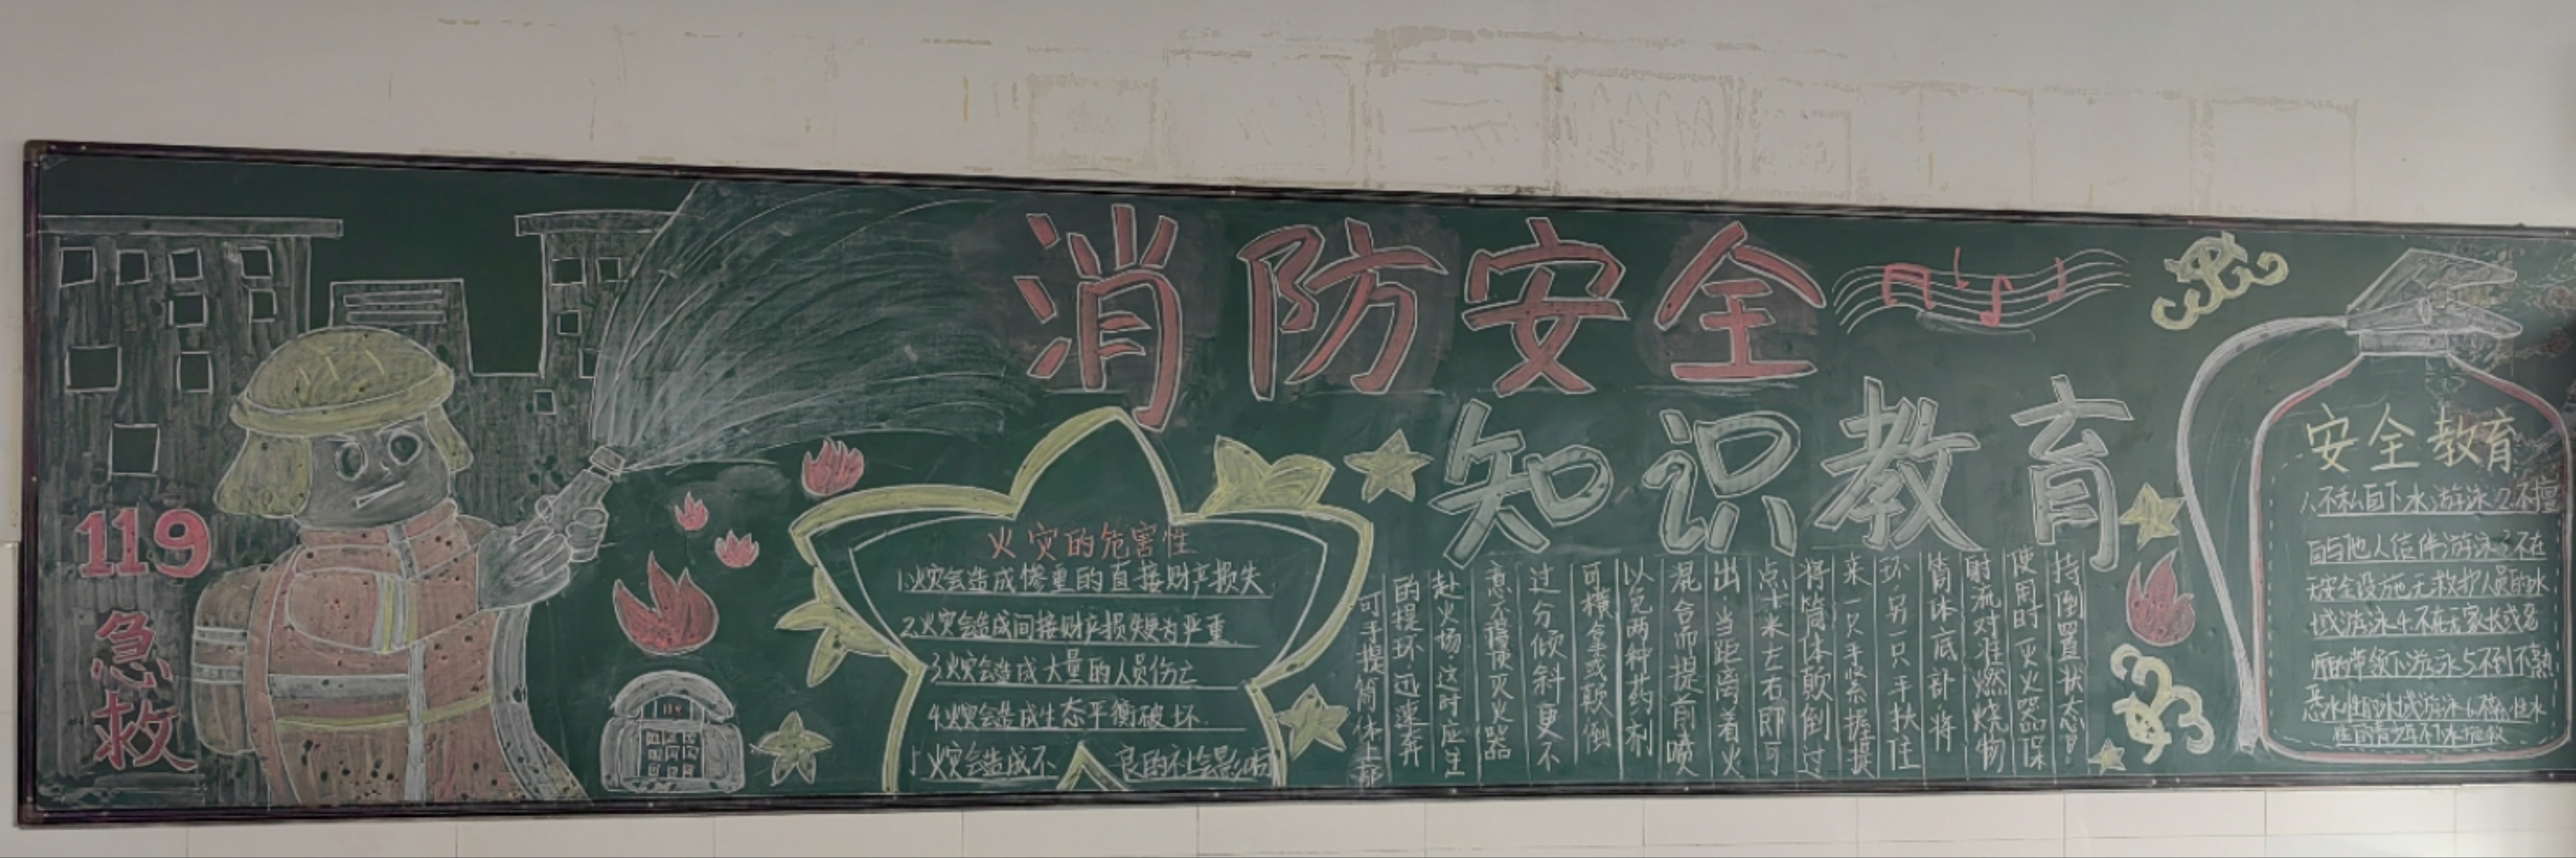 消防安全
知识教育
119
急救
火灾的危害性
1.火灾会造成惨重的直接财产损失
2.火灾会造成间接财产损失更为严重
3.火灾会造成大量的人员伤亡
4.火灾会造成生态平衡破坏.
5.火灾会造成不良的社会影响
可手提筒体上部
的提环迅速奔
赴火场这时应注
意不得使灭火器
过分倾斜更不
可横拿或颠倒
以免两种药剂
混合而提前喷
出当距离着火
点十米左右即可
将筒体颠倒过
来一只手紧握提
环另一只手扶住
筒体底部将
射流对准燃烧物
使用时灭火器保
持倒置状态!
安全教育
1.不私自下水游泳2.不擅
自与他人结伴游泳3.不在
无安全设施无救护人员的水
域游泳4.不在无家长或老
师的带领下游泳5.不到不熟
悉水性